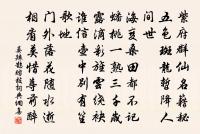 紫府群仙名籍秘
五色斑龍暫降人
間世
海變桑田都不記
蟠桃一熟三千歲
露滴彩旌雲繞袂
誰信壺中別有笙
歌地
門外落花隨水逝
相看莫惜尊前醉
晏殊鵲踏枝